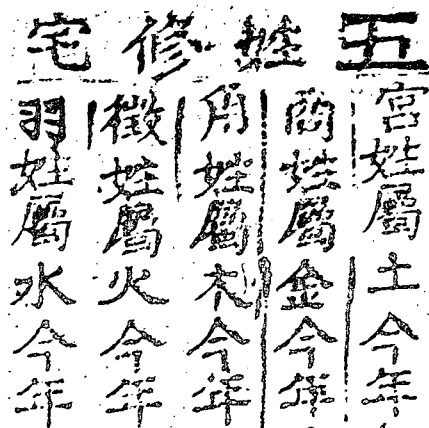 五姓修宅
宮姓屬土今年
商姓屬金今年
角姓屬木今年
徵姓屬火今年
羽姓屬水今年